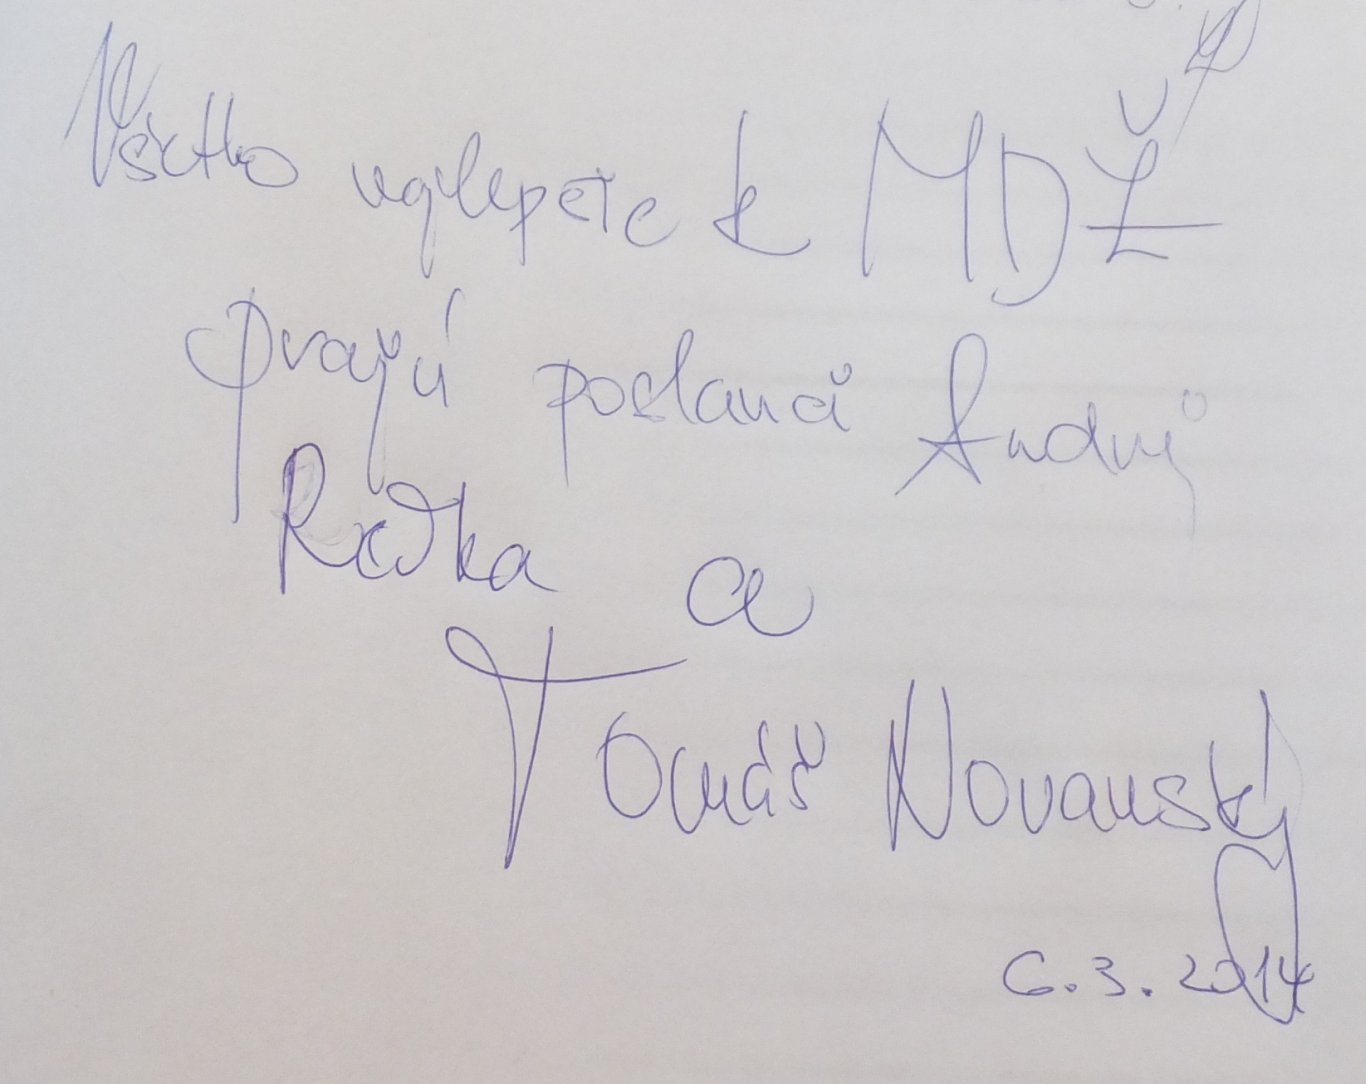 Všetko najlepšie k MDŽ
prajú poslanci Andrej
Radka a
Tomáš Novanský
6.3.2014